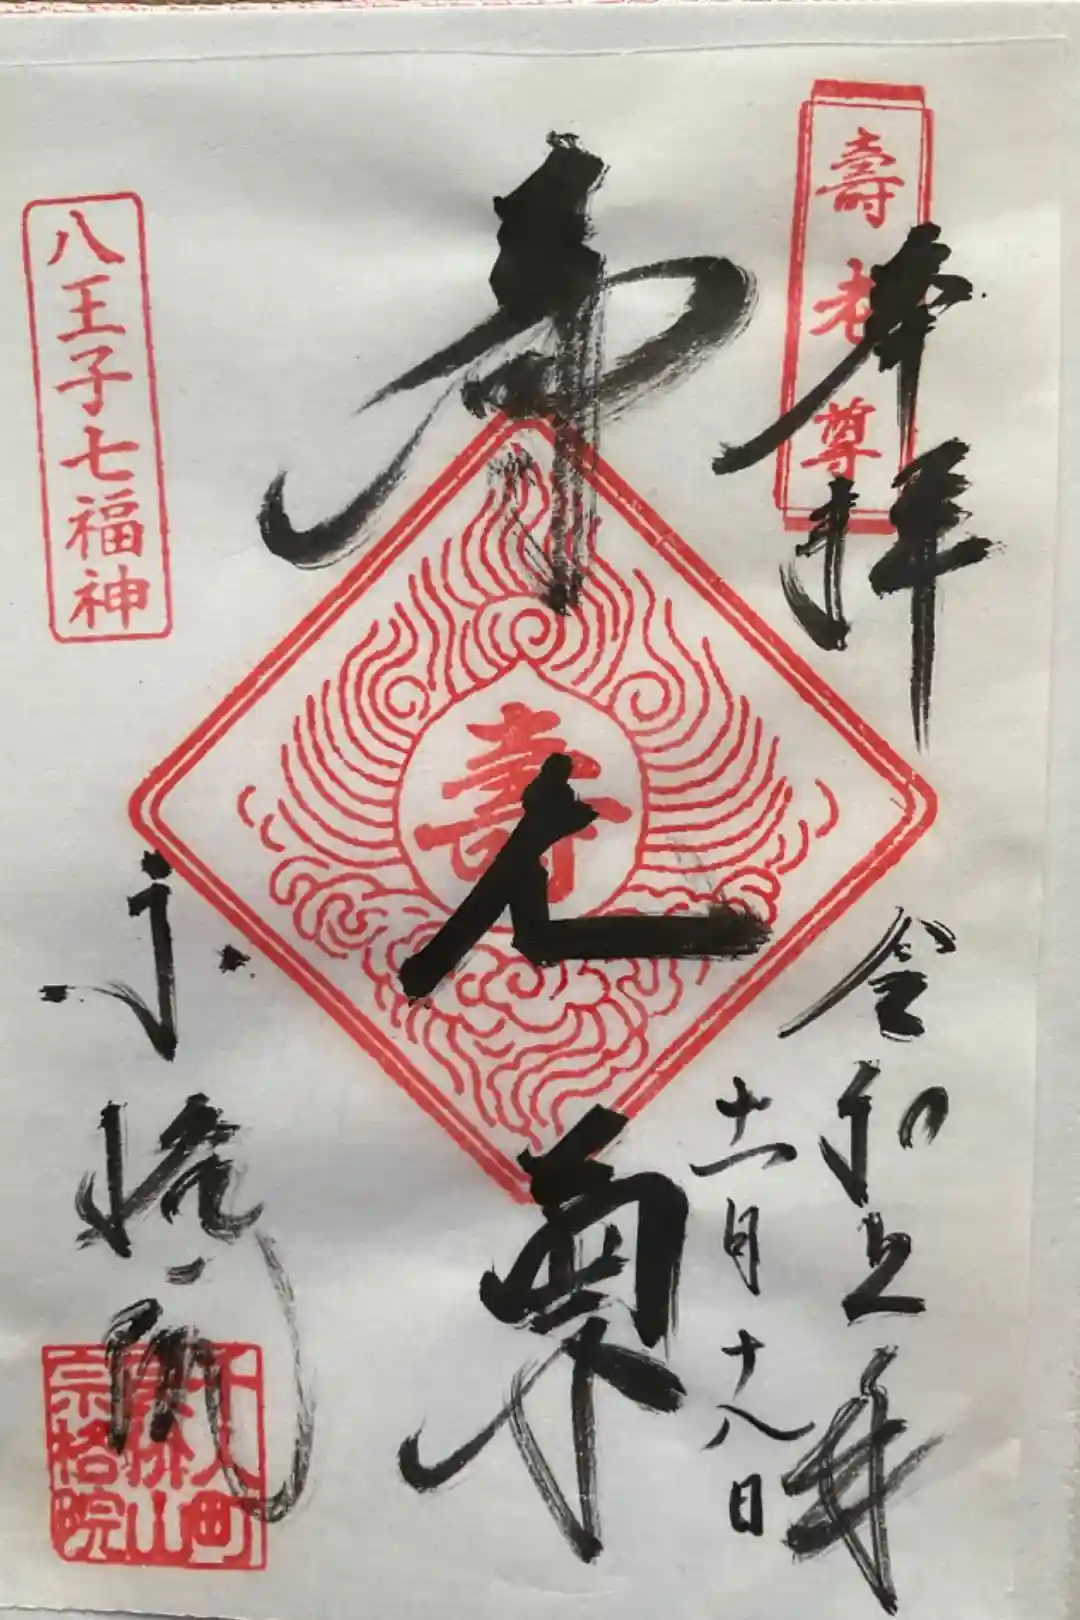 壽老尊
奉拝
令和五年
十一月十八日
寿老尊
壽
八王子七福神
宗格院
千人町
良价山
宗格院